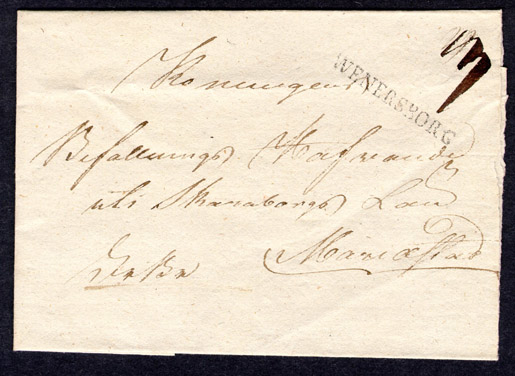 Konungens
WENERSBORG
Befallningshafvande
uti Skaraborgs Län
Mariæstad